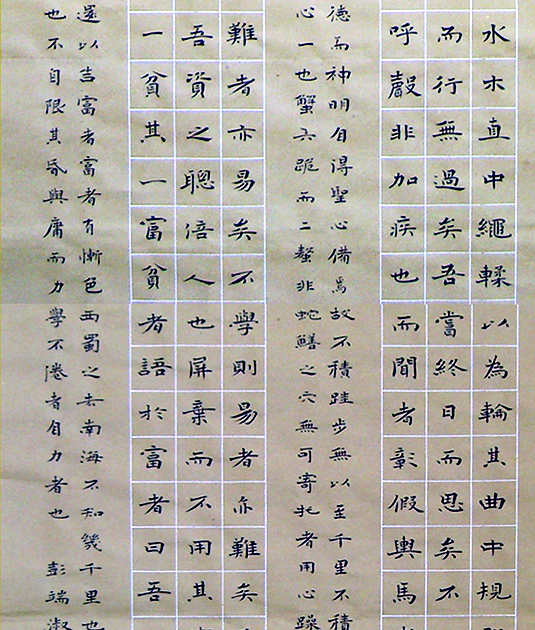 水木直中繩輮以為輪其曲中規
而行無過矣吾嘗終日而思矣不
呼聲非加疾也而聞者彰假輿馬
德而神明自得聖心備焉故不積跬步無以至千里不積
心一也蟹六跪而二螯非蛇鱔之穴無可寄托者用心躁
難者亦易矣不學則易者亦難矣
吾資之聰倍人也屏棄而不用其
一貧其一富貧者語於富者曰吾
還以告富者富者有慚色西蜀之去南海不知幾千里也
也不自限其昏與庸而力學不倦者自力者也 彭端淑